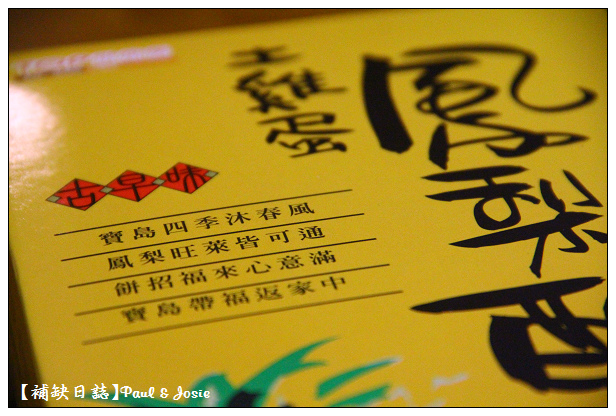 土雞蛋
古早味
寶島四季沐春風
鳳梨旺萊皆可通
餅招福來心意滿
寶島帶福返家中
【補缺日誌】Paul & Josie